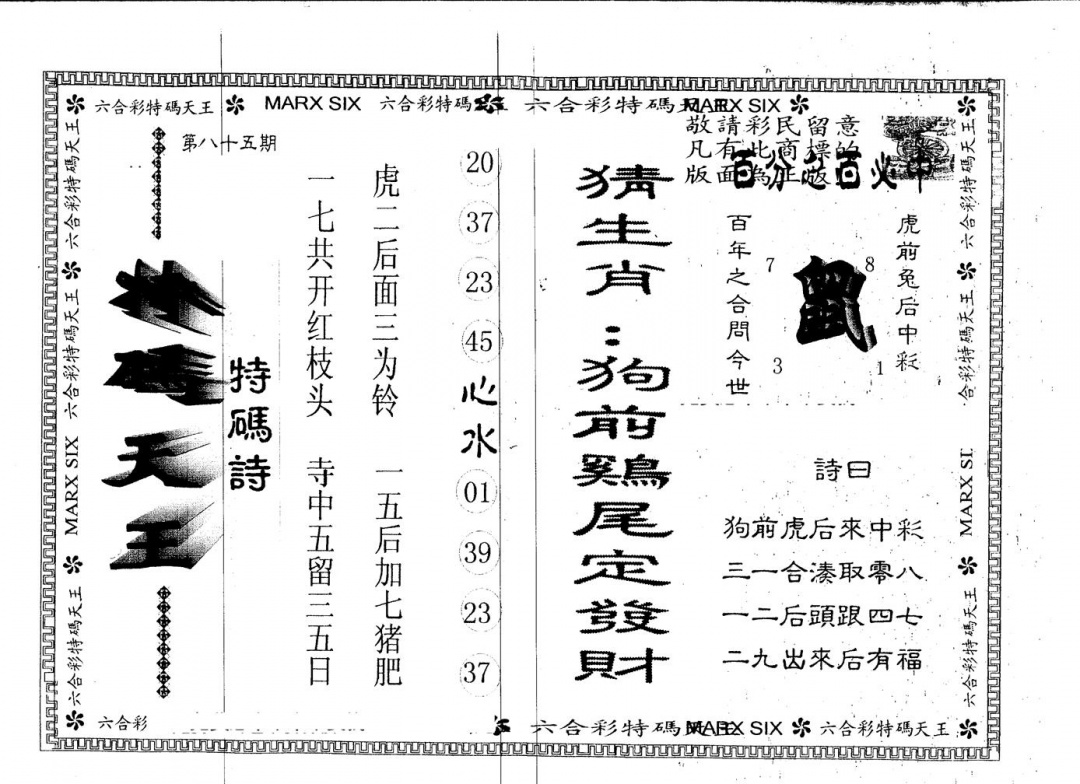 六合彩特碼天王 MARX SIX 六合彩特碼 六合彩特碼天王 MARX SIX
第八十五期
特碼天王
特碼詩
虎二后面三为铃 一五后加七猪肥
一七共开红枝头 寺中五留三五日
20
37
23
45
心水
01
39
23
37
猜生肖:狗前鷄尾定發財
敬請彩民留意
凡有此商標的
版面為正版
百分之百必中
虎前兔后中彩
百年之合問今世
鼠
7
8
3
1
詩曰
狗前虎后來中彩
三一合湊取零八
一二后頭跟四七
二九出來后有福
六合彩特碼天王
六合彩特碼天王
六合彩特碼天王
MARX SIX
六合彩特碼天王
六合彩特碼天王
合彩特碼天王
MARX SI
六合彩特碼天王
六合彩 六合彩特碼 MARX SIX 六合彩特碼天王